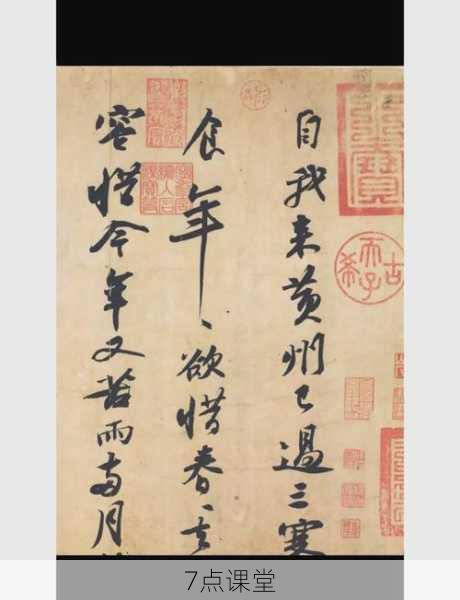 自我来黄州已過三寒
食年〻欲惜春〻去
容惜今年又苦雨兩月
古希天子
7点课堂